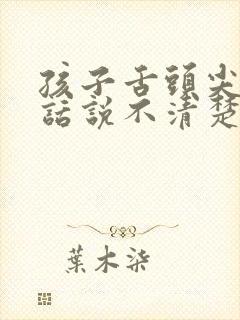 孩子舌頭尖
話說不清楚
葉木柒